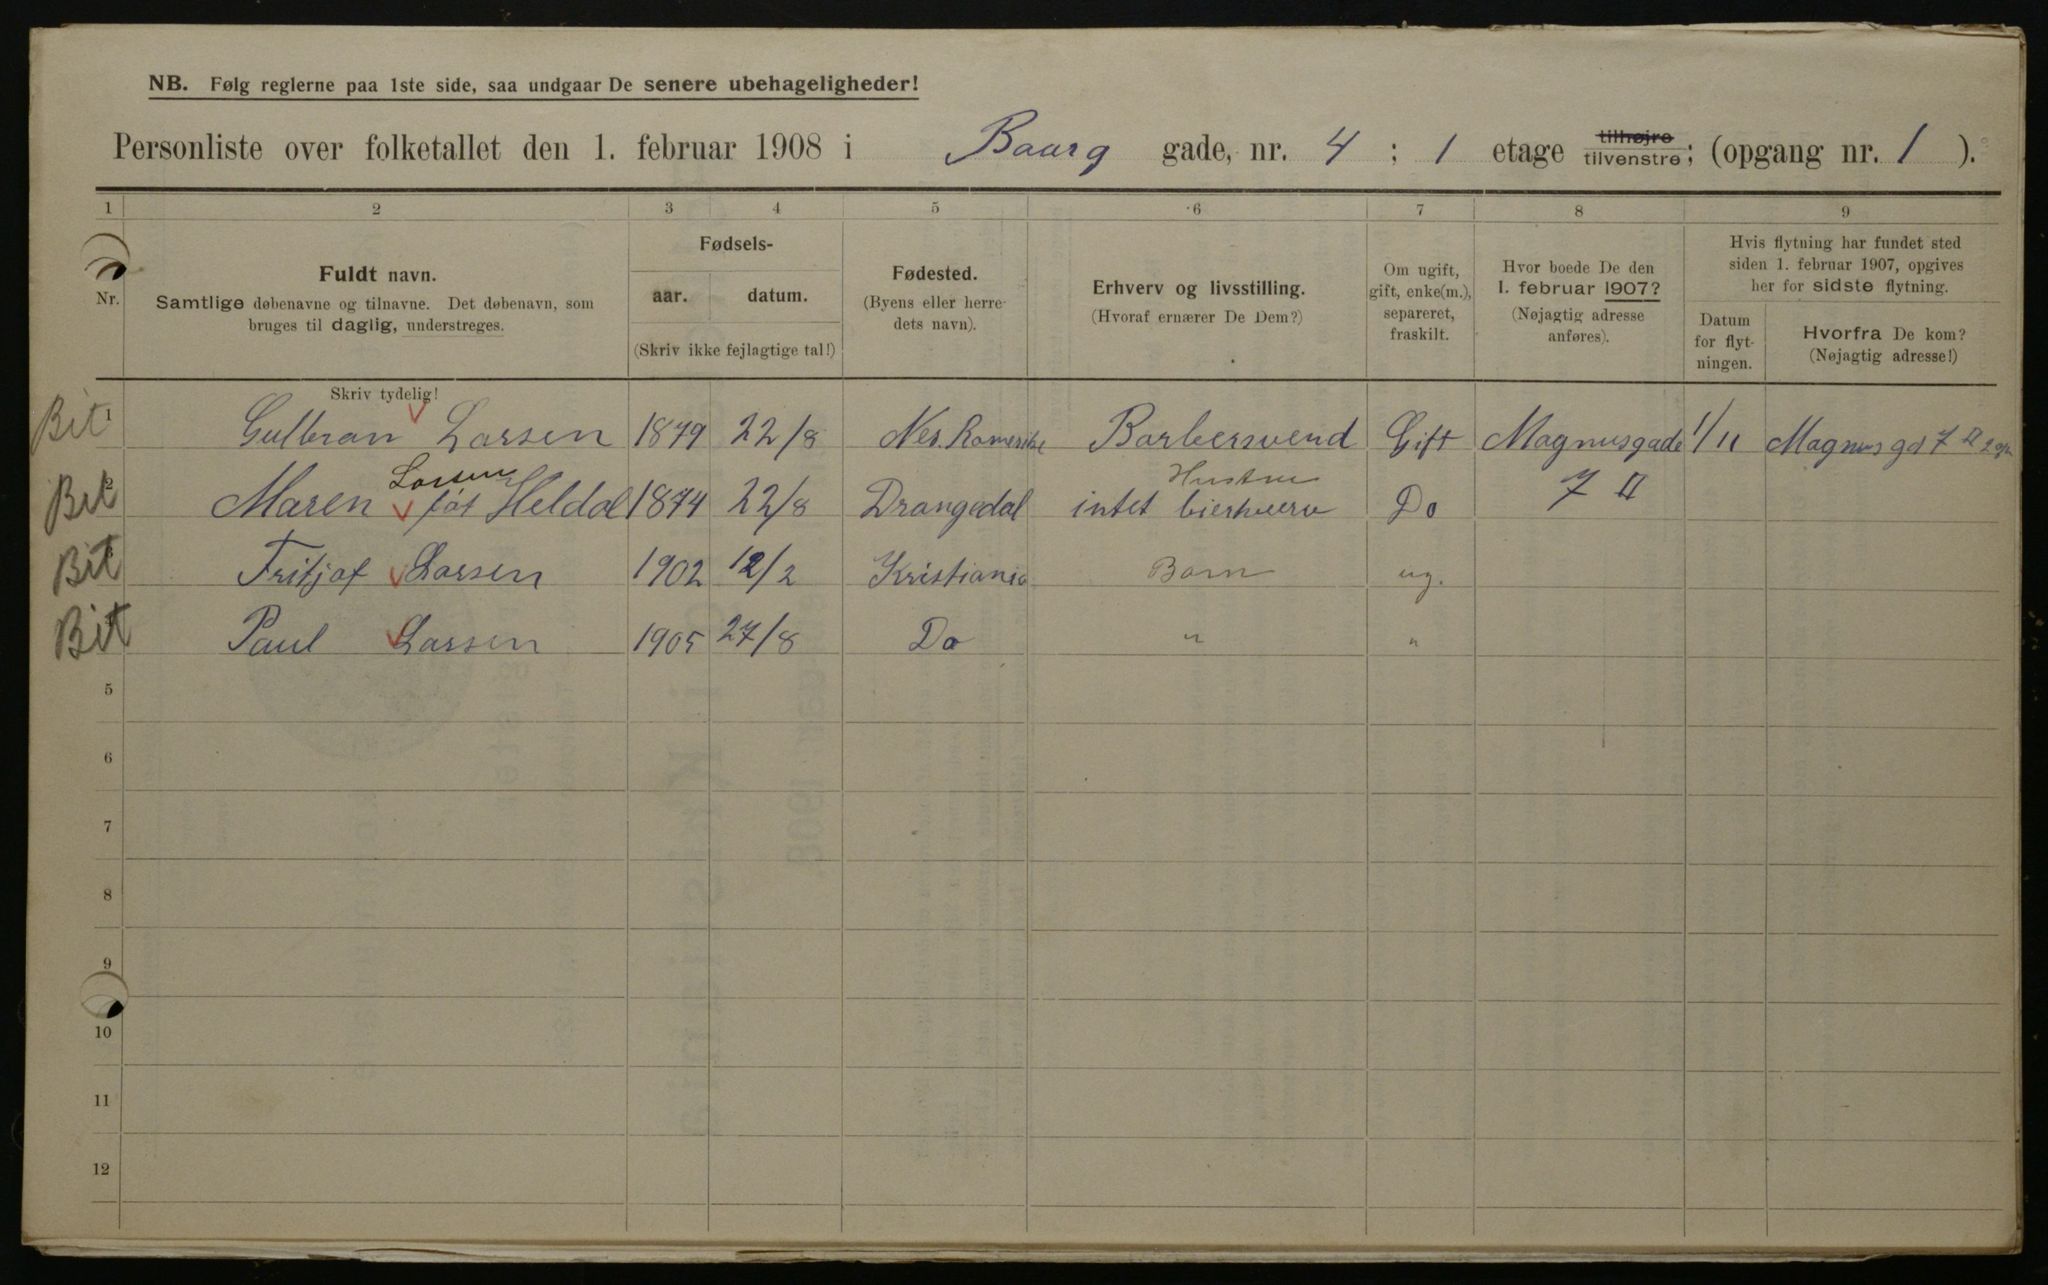 NB. Følg reglerne paa 1ste side, saa undgaar De senere ubehageligheder!
Personliste over folketallet den 1. februar 1908 i Baarg gade, nr. 4 ; 1 etage tilhøjre tilvenstre; (opgang nr. 1 ).
1 2 3 4 5 6 7 8 9
Nr.
Fuldt navn.
Samtlige døbenavne og tilnavne. Det døbenavn, som
bruges til daglig, understreges.
Skriv tydelig!
Fødsels-
aar. datum.
(Skriv ikke fejlagtige tal!)
Fødested.
(Byens eller herre-
dets navn).
Erhverv og livsstilling.
(Hvoraf ernærer De Dem?)
Om ugift,
gift, enke(m.),
separeret,
fraskilt.
Hvor boede De den
1. februar 1907?
(Nøjagtig adresse
anføres).
Hvis flytning har fundet sted
siden 1. februar 1907, opgives
her for sidste flytning.
Datum
for flyt-
ningen.
Hvorfra De kom?
(Nøjagtig adresse!)
Bit 1 Gulbran Larsen 1879 22/8 Nes. Romerike Barbersvend Gift Magnusgade 1/11 Magnus gd 7 II
Larsen Hustru
Bit 2 Maren føt Heldal 1874 22/8 Drangedal intet bierhverv Do 7 II
Bit 3 Fritjof Larsen 1902 12/2 Kristiania Barn ug.
Bit Paul Larsen 1905 27/8 Do " "
5
6
7
8
9
10
11
12